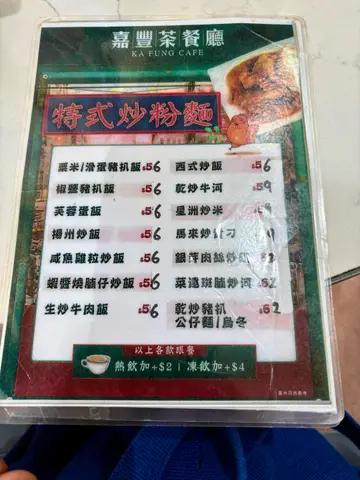 嘉豐茶餐廳
KA FUNG CAFE
特式炒粉麵
粟米/滑蛋豬扒飯 $56
椒鹽豬扒飯 $56
芙蓉蛋飯 $56
揚州炒飯 $56
咸魚雞粒炒飯 $56
蝦醬燒腩仔炒飯 $56
生炒牛肉飯 $56
西式炒飯 $56
乾炒牛河 $59
星洲炒米
馬來炒
銀芽肉絲炒
菜遠斑腩炒河
乾炒豬扒
公仔麵/烏冬
以上各款跟餐
熱飲加+$2 | 凍飲加+$4